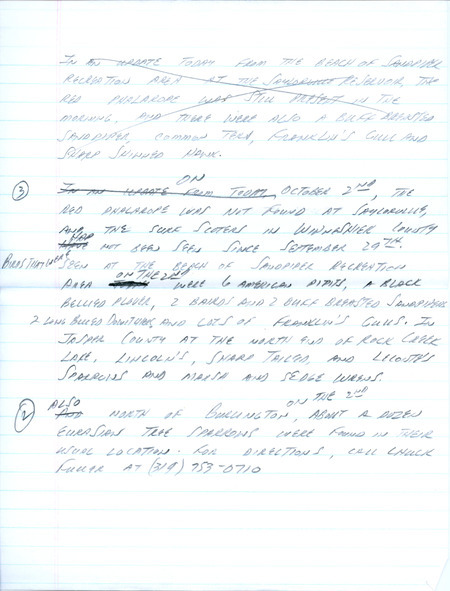 IN AN UPDATE TODAY FROM THE BEACH OF SANDPIPER
RECREATION AREA AT THE SAYLORVILLE RESERVOIR, THE
RED PHALAROPE WAS STILL PRESENT IN THE
MORNING. AND THERE WERE ALSO A BUFF BREASTED
SANDPIPER, COMMON TERN, FRANKLIN'S GULL AND
SHARP SHINNED HAWK.
ON
3 IN AN UPDATE FROM TODAY, OCTOBER 2ND, THE
RED PHALAROPE WAS NOT FOUND AT SAYLORVILLE,
AND THE SURF SCOTERS IN WINNESHIEK COUNTY
HAD NOT BEEN SEEN SINCE SEPTEMBER 29TH.
BIRDS THAT WERE SEEN AT THE BEACH OF SANDPIPER RECREATION
AREA ON THE 2ND WERE 6 AMERICAN PIPITS, A BLACK
BELLIED PLOVER, 2 BAIRDS AND 2 BUFF BREASTED SANDPIPERS
2 LONG BILLED DOWITCHERS AND LOTS OF FRANKLIN'S GULLS. IN
JASPER COUNTY AT THE NORTH END OF ROCK CREEK
LAKE, LINCOLN'S, SHARP TAILED, AND LECONTE'S
SPARROWS AND MARSH AND SEDGE WRENS.
ALSO ON THE 2ND
2 NORTH OF BURLINGTON, ABOUT A DOZEN
EURASIAN TREE SPARROWS WERE FOUND IN THEIR
USUAL LOCATION. FOR DIRECTIONS, CALL CHUCK
FULLER AT (319) 753-0710